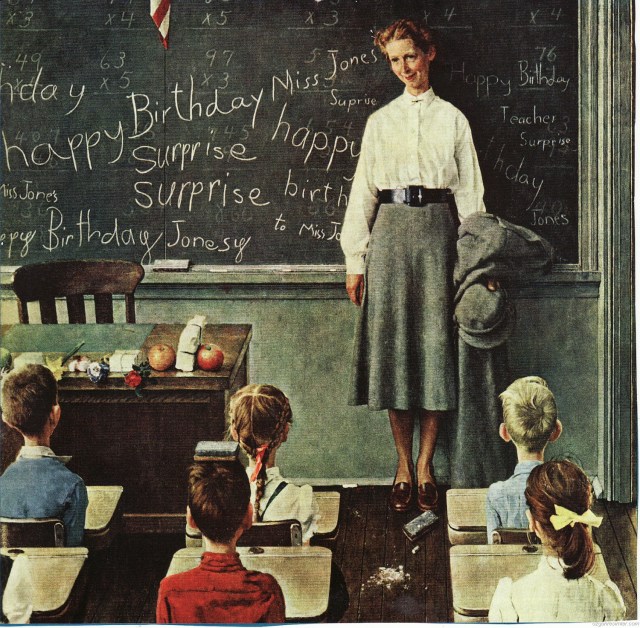 x 3 x 4 x 5 x 3 x 4 x 4
49 63 97 5 76
x 5 x 3
Miss Jones
Suprise
Happy Birthday
hday
Birthday
happy
Surprise
surprise
happy
birth
to Miss Jo
Teacher
Surprise
hday
Jones
Miss Jones
ppy Birthday Jonesy